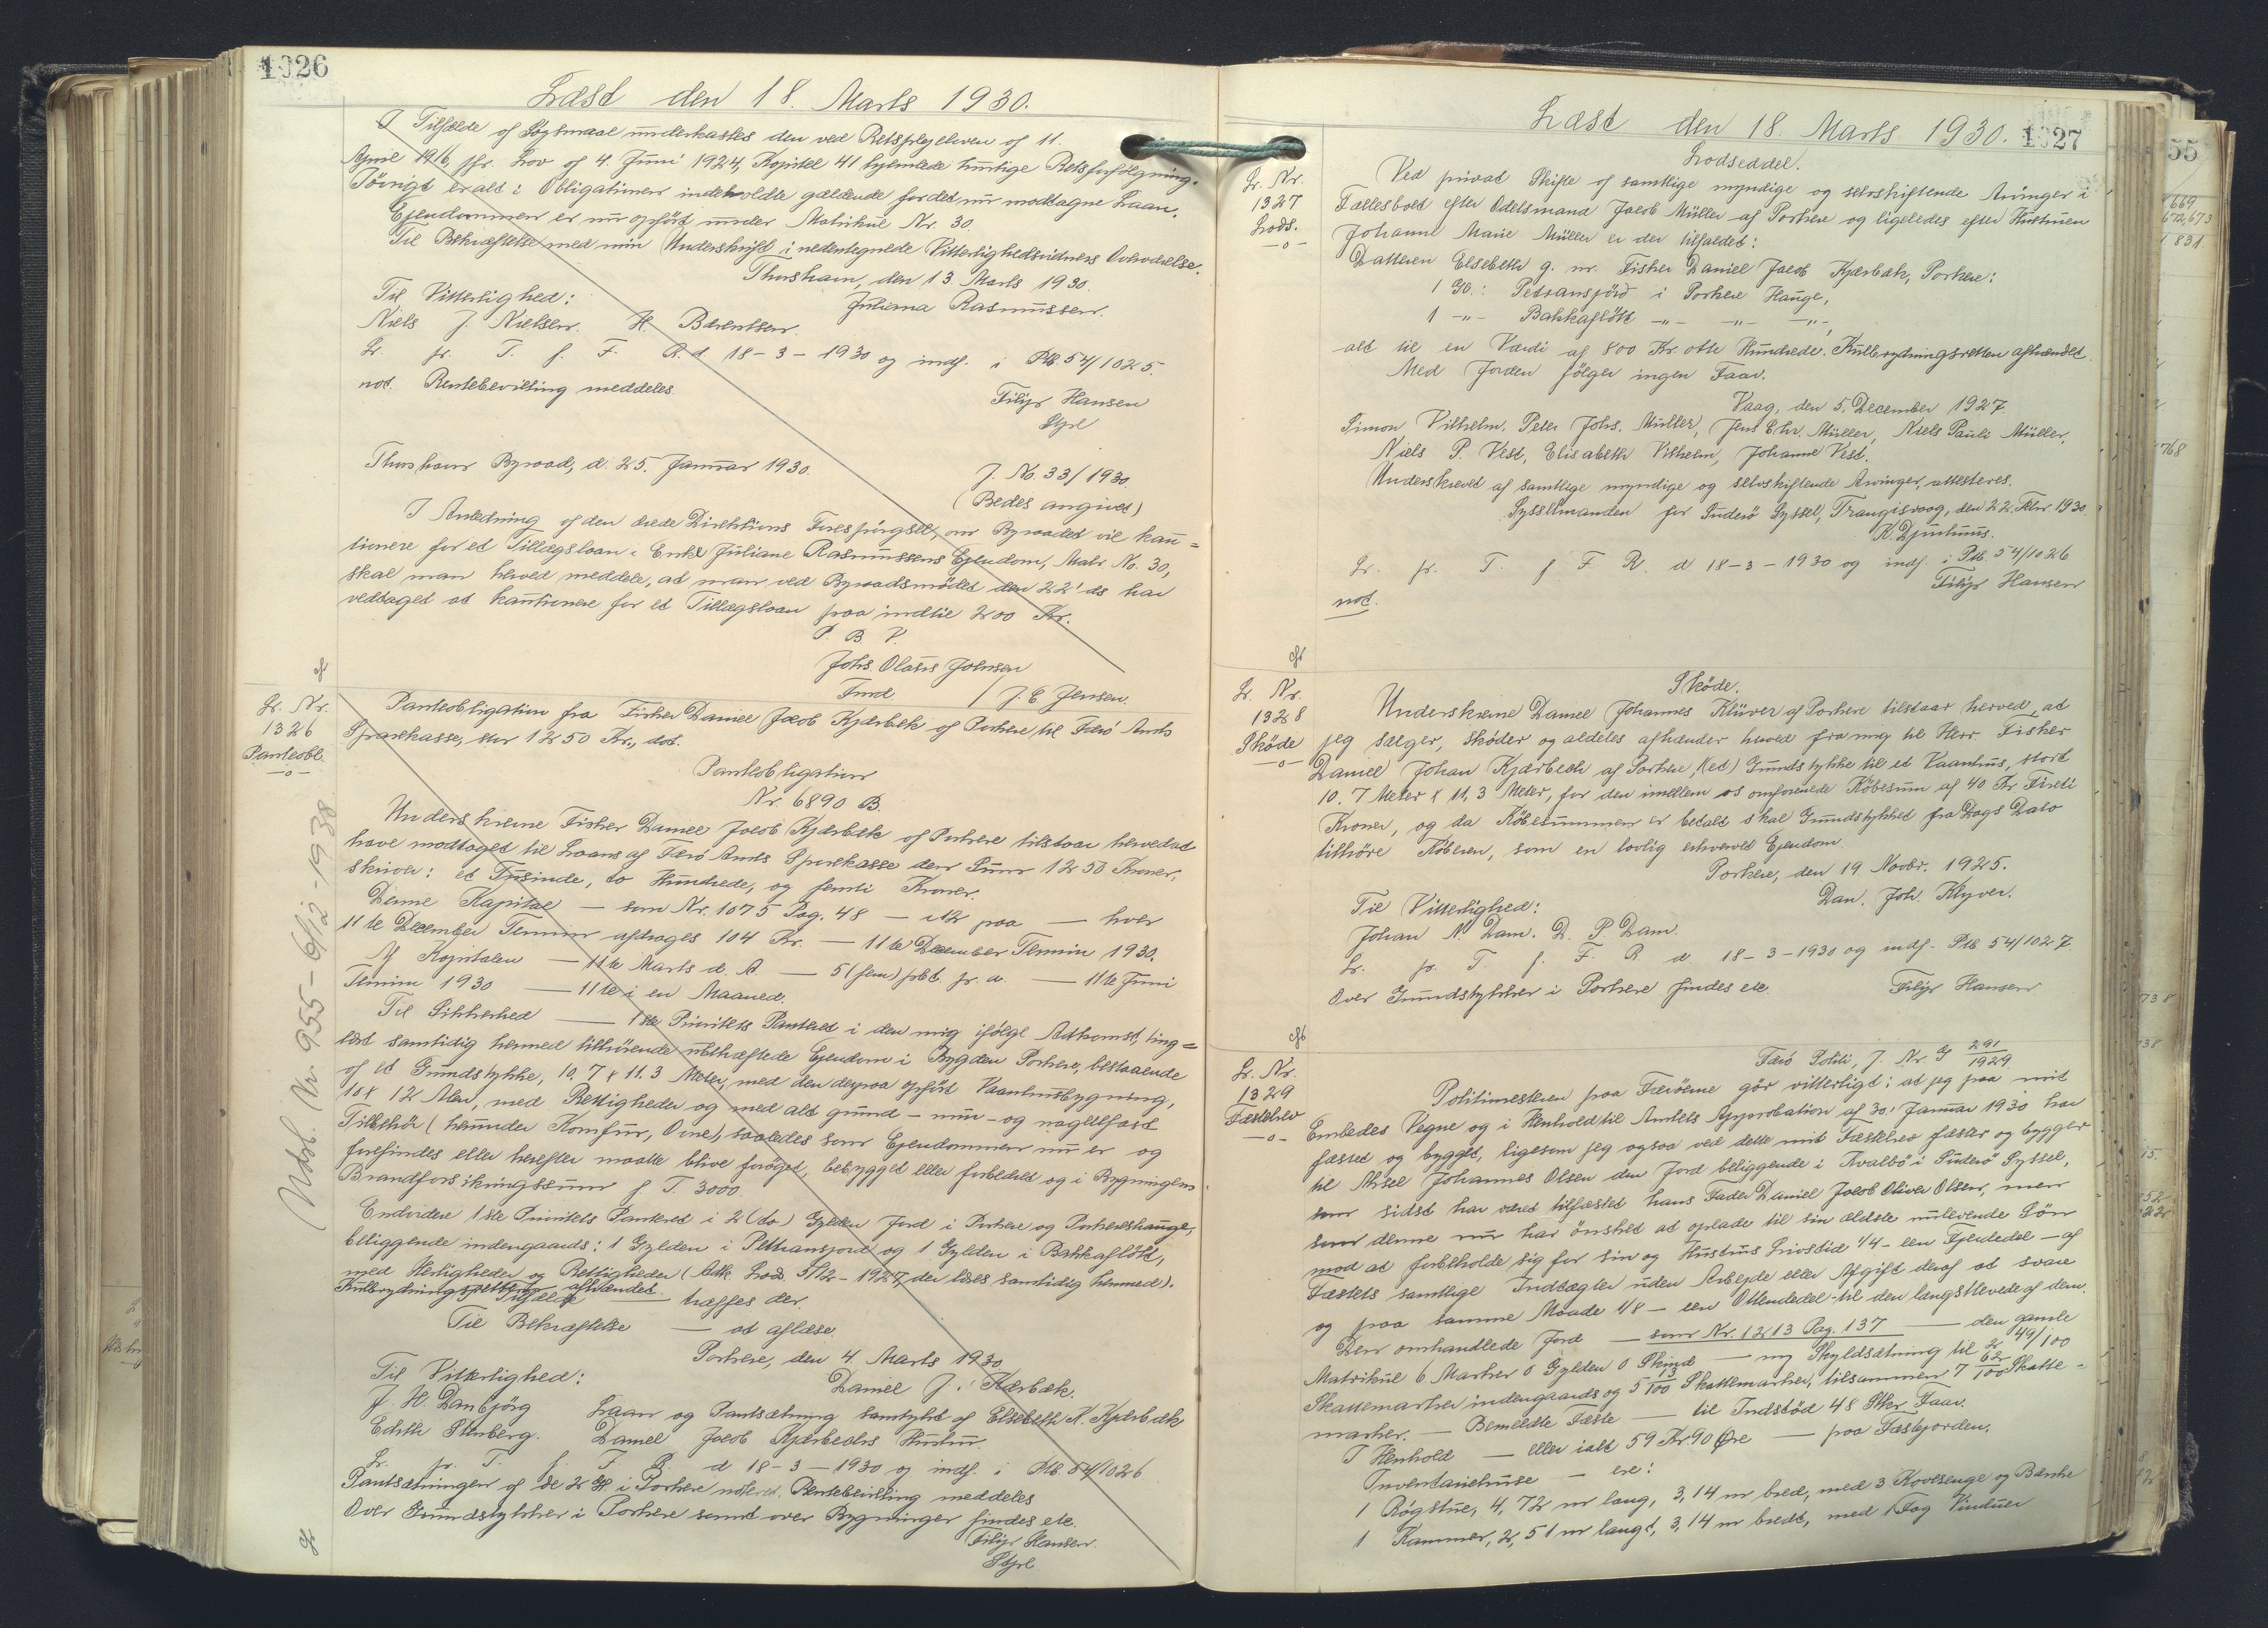 1026
Læst den 18. Marts 1930.
I Tilfælde af Søgsmaal underkastes den ved Retsplejeloven af 11.
April 1916 jfr. Lov af 4. Juni 1924, Kapitel 41 hjemlede hurtige Retsforfølgning.
Iøvrigt er alt i Obligationen indeholdte gældende for det nu modtagne Laan.
Ejendommen er nu opført under Matrikul Nr. 30.
Til Bekræftelse med min Underskrift i nedentegnede Vitterlighedsvidners Overværelse.
Thorshavn, den 13. Marts 1930.
Til Vitterlighed:
Juliana Rasmussen.
Niels J. Nielsen. H. Bærentsen.
Lr. pr. T. f. F. R. d. 18-3-1930 og indf. i Ptb. 54/1025
not. Rentebevilling meddeles.
Filip Hansen
Stfr.
Thorshavn Byraad, d. 25. Januar 1930.
J. No. 33/1930.
(Bedes angivet)
I Anledning af den ærede Direktions Forespørgsel, om Byraadet vil kau=
tionere for et Tillægslaan i Enke Juliane Rasmussens Ejendom, Matr. No. 30,
skal man herved meddele, at man ved Byraadsmødet den 22' ds har
vedtaget at kautionere for et Tillægslaan paa indtil 200 Kr.
P. B. V.
Johs. Olaus Johnsen
Fmd / J. E. Jensen.
Lr. Nr.
1326
Panteobl.
-o-
Panteobligation fra Fisker Daniel Jacob Kjærbæk af Porkere til Færø Amts
Sparekasse, stor 1250 Kr., dat.
Panteobligation
Nr. 6890 B.
Underskrevne Fisker Daniel Jacob Kjærbæk af Porkere tilstaar herved at
have modtaget til Laans af Færø Amts Sparekasse den Sum 1250 Kroner,
skriver: et Tusinde, to Hundrede, og femti Kroner.
Denne Kapital — som Nr. 1075 Pag. 48 — i 12 paa — hver
11te December Termin afdrages 104 Kr. — 11te December Termin 1930.
Af Kapitalen — 11te Marts d. A. — 5 (fem) pCt. pr. a. — 11te Juni
Termin 1930 — 11te i en Maaned.
Til Sikkerhed — 1ste Prioritets Panteret i den mig ifølge Adkomst, ting=
læst samtidig hermed tilhørende ubehæftede Ejendom i Bygden Porkere, bestaaende
af et Grundstykke, 10.7 x 11.3 Meter, med den derpaa opført Vaanhusbygning,
10 x 12 Alen, med Rettigheder og med alt grund- mur- og nagelfast
Tilbehør (herunder Komfur, Ovne), saaledes som Ejendommen nu er og
forefindes eller herefter maatte blive forøget, bebygget eller forbedret og i Bygningens
Brandforsikringssum f. T. 3000.
Endvidere 1ste Prioritets Panteret i 2 (to) Gylden Jord i Porkere og Porkereshauge,
beliggende indengaards: 1 Gylden i Petransjord og 1 Gylden i Bakkafløtt,
med Herligheder og Rettigheder (Adk. Lods. 5/12-1927, der læses samtidig hermed).
Kulbrydningsretten afhændet.
Tilfælde — træffes der.
Til Bekræftelse — at aflæse.
Porkere, den 4. Marts 1930
Til Vitterlighed:
Daniel J. Kærbæk.
J. H. Danbjørg
Laan og Pantsætning samtykt af Elsebeth K. Kjærbæk
Edith Stenberg.
Daniel Jacob Kjærbechs Hustru
Lr. pr. T. f. F. R. d 18-3-1930 og indf. i Ptb. 54/1026
Pantsætningen af de 2 Gl. i Porkere noteret. Rentebevilling meddeles
Over Grundstykker i Porkere samt over Bygninger findes etc.
Filip Hansen.
Stfr.
Udsl. Nr. 955-6/12-1938
1027
Læst den 18. Marts 1930.
Lr. Nr.
1327
Lods.
-o-
Lodseddel.
Ved privat Skifte af samtlige myndige og selvskiftende Arvinger i
Fællesboet efter Odelsmand Jacob Müller af Porkere og ligeledes efter Hustruen
Johanne Marie Müller er der tilfaldet:
Datteren Elsebeth g. m. Fisker Daniel Jacob Kjærbæk, Porkere:
1 Gl.: Petransjørd i Porkere Hauge,
1 -"- Bakkafløtt -"- -"- -"-,
alt til en Værdi af 800 Kr. otte Hundrede. Kulbrydningsretten afhændet.
Med Jorden følger ingen Faar.
Vaag, den 5. December 1927.
Simon Vilhelm. Peter Johs. Müller, Jens Chr. Müller, Niels Pauli Müller,
Niels P. Vest, Elisabeth Vilhelm, Johanne Vest.
Underskrevet af samtlige myndige og selvskiftende Arvinger, attesteres.
Sysselmanden for Suderø Syssel, Trangisvaag, den 22. Febr. 1930
K. Djurhuus.
Lr. pr. T. f. F. R. d 18-3-1930 og indf. i Ptb. 54/1026
not.
Filip Hansen
Lr. Nr.
1328
Skøde
-o-
Skøde.
Underskrevne Daniel Johannes Klüver af Porkere tilstaar herved, at
jeg sælger, skøder og aldeles afhænder herved fra mig til Herr Fisker
Daniel Johan Kjærbech af Porkere, (et) Grundstykke til et Vaanhus, stort
10.7 Meter x 11,3 Meter, for den imellem os omforenede Købesum af 40 Kr Fireti
Kroner, og da Købesummen er betalt skal Grundstykket fra Dags Dato
tilhøre Køberen, som en lovlig erhvervet Ejendom
Porkere, den 19. Novbr. 1925.
Til Vitterlighed:
Dan. Joh. Klyver.
Johan N. Dam. D. P. Dam.
Lr. pr. T. f. F. R. d. 18-3-1930 og indf. Ptb 54/1027
Over Grundstykker i Porkere findes etc.
Filip Hansen
Lr. Nr.
1329
Fæstebrev
-o-
Færø Politi, J. Nr. G 291/1929
Politimesteren paa Færøerne gør vitterligt: at jeg paa mit
Embedes Vegne og i Henhold til Amtets Approbation af 30. Januar 1930 har
fæstet og bygget, ligesom jeg ogsaa ved dette mit Fæstebrev fæster og bygger
til Misel Johannes Olsen den Jord beliggende i Kvalbø i Suderø Syssel,
som sidst har været tilfæstet hans Fader Daniel Jacob Oliver Olsen, men
som denne nu har ønsket at oplade til sin ældste nulevende Søn
mod at forbeholde sig for sin og Hustrus Livstid 1/4 - een Fjerdedel - af
Fæstets samtlige Indtægter uden Arbejde eller Afgift deraf at svare
og paa samme Maade 1/8 - een Ottendedel - til den længstlevende af dem.
Den omhandlede Jord — som Nr. 1213 Pag. 137 — den gamle
Matrikul 6 Marker 0 Gylden 0 Skind — ny Skyldsætning til 2 49/100
Skattemarker indengaards og 5 13/100 Skattemarker, tilsammen 7 62/100 Skatte-
marker. — Bemeldte Fæste — til Indstød 48 Stkr Faar.
I Henhold — eller ialt 59 Kr. 90 Øre — paa Fæstejorden.
Inventariehuse — ere:
1 Røgstue, 4,72 m lang, 3,14 m bred, med 3 Kovesenge og Bænke
1 Kammer, 2,51 m langt, 3,14 m bredt, med 1 Fag Vinduer
55